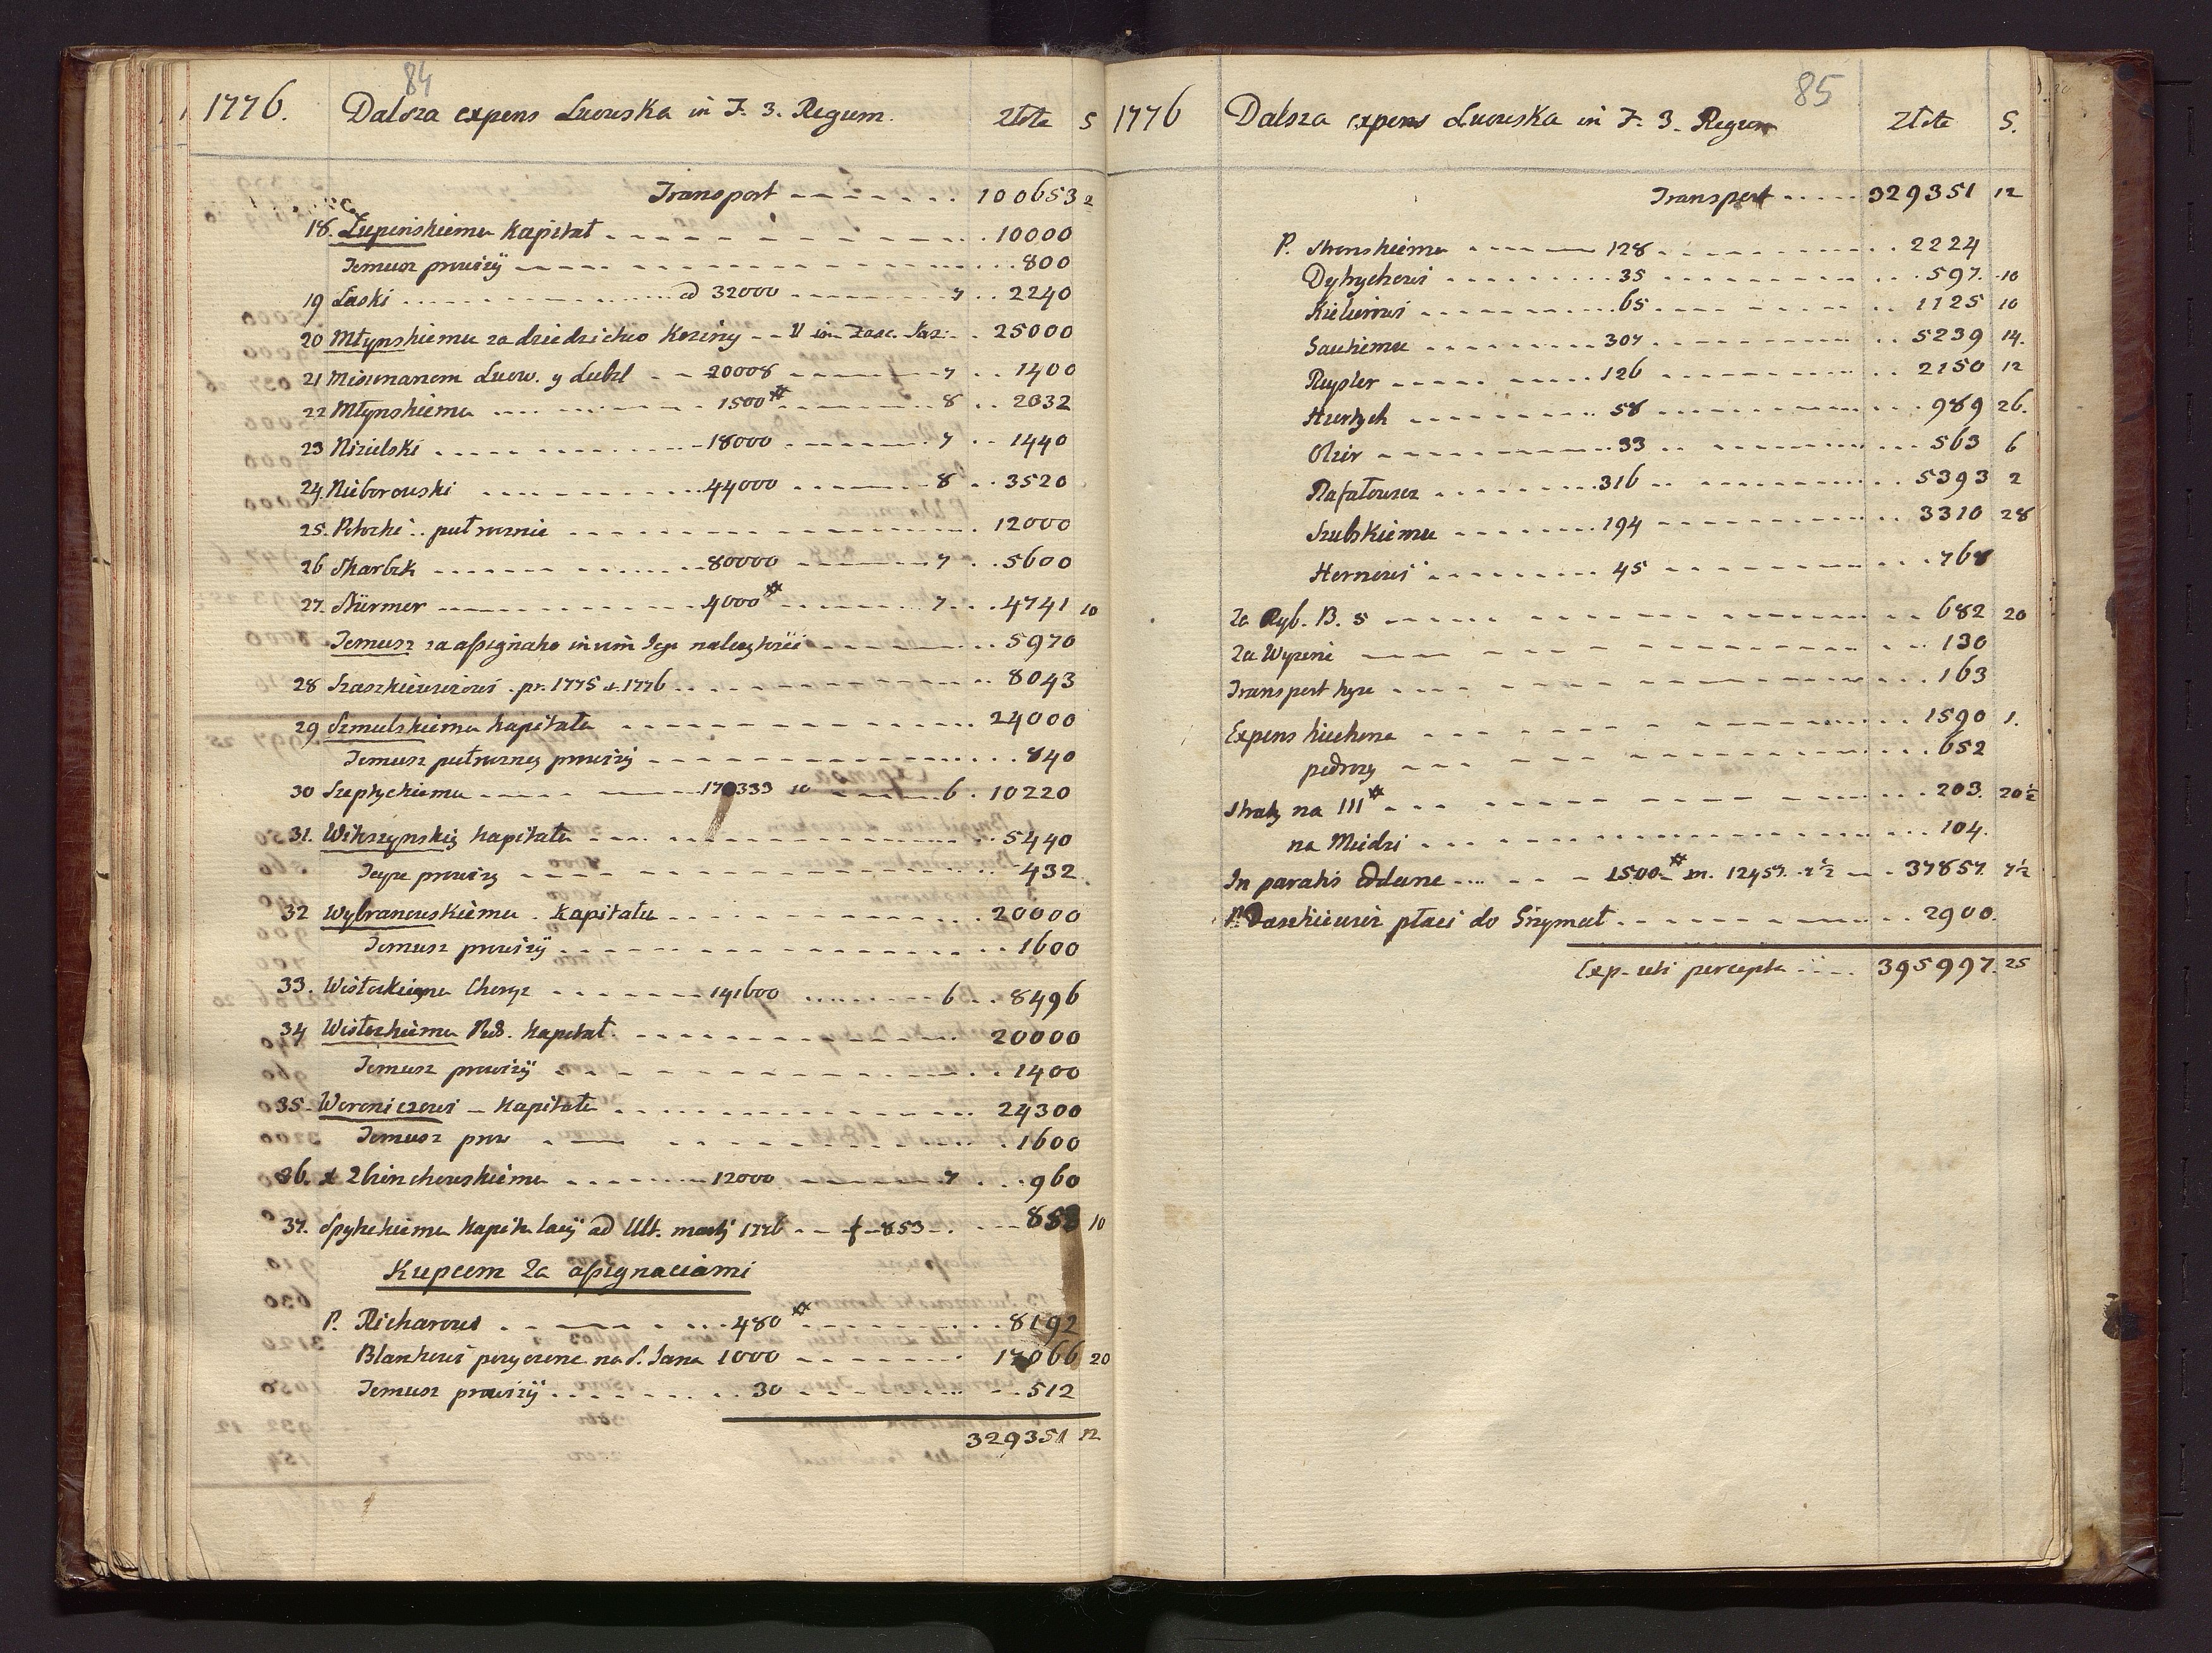 84
1776. Dalsza expens Lwowska in F. 3. Regum. Złote S
Transport 100653 2
18. Łupinskiemu Kapitał 10000
Temusz prowizÿ 800
19 Laski ad 32000 7 2240
20 Młynskiemu za dziedzictwo Koziny 25000
21 Missionarzom Lwow. y Lubel 20000 7 1400
22 Młynskiemu 1500# 8 2032
23 Nizielski 18000 7 1440
24 Nieborowski 44000 8 3520
25. Potocki pułrocznie 12000
26 Skarbek 80000 7 5600
27. Stürmer 4000# 7 4741 10
Temusz za assignatio in vim Jego należytości 5970
28 Szaszkiewiczowi pr. 1775 & 1776 8043
29 Szmulskiemu kapitału 24000
Temusz pułroczney prowizÿ 840
30 Szeptyckiemu 170333 10 6 10220
31. Wikszynskiy kapitału 5440
Teyze prowizy 432
32 Wybranowskiemu Kapitału 20000
Temusz prowizÿ 1600
33. Wisłockiemu Choryz 141600 6 8496
34 Wisłockiemu Pod. Kapitał 20000
Temusz prowizÿ 1400
35. Woroniczowi Kapitału 24300
Temusz prow 1600
36. x Zbierzchowskiemu 12000 7 960
37. ad Ult. martÿ 1776 f 853 853 10
Kupcom Za assignaciami
P. Richarowi 480# 8192
na S. Jana 1000 17066 20
Temusz prowizÿ 30 512
329351 12
85
1776 Dalsza expens Lwowska in F. 3. Regum Złote S.
Transport 329351 12
P. Stronskiemu 128 2224
Dytrychowi 35 597 10
Kielowi 65 1125 10
Sauhiemu 307 5239 14.
Reysler 126 2150 12
Hertych 58 989 26.
Olier 33 563 6
Rafałowicz 316 5393 2
Szulskiemu 194 3310 28
Hornowi 45 768
Za Ryb. B. 5 682 20
Za Wyzine 130
Transport tyze 163
Expens kuchena 1590 1.
podrozy 652
Straty na III# 203. 20½
na Miedzi 104.
In paratis oddane 1500# m. 12457. 7½ 37857. 7½
P. Daszkiewicz płaci do Grzymał 2900.
Exp. uti percepta 395997. 25